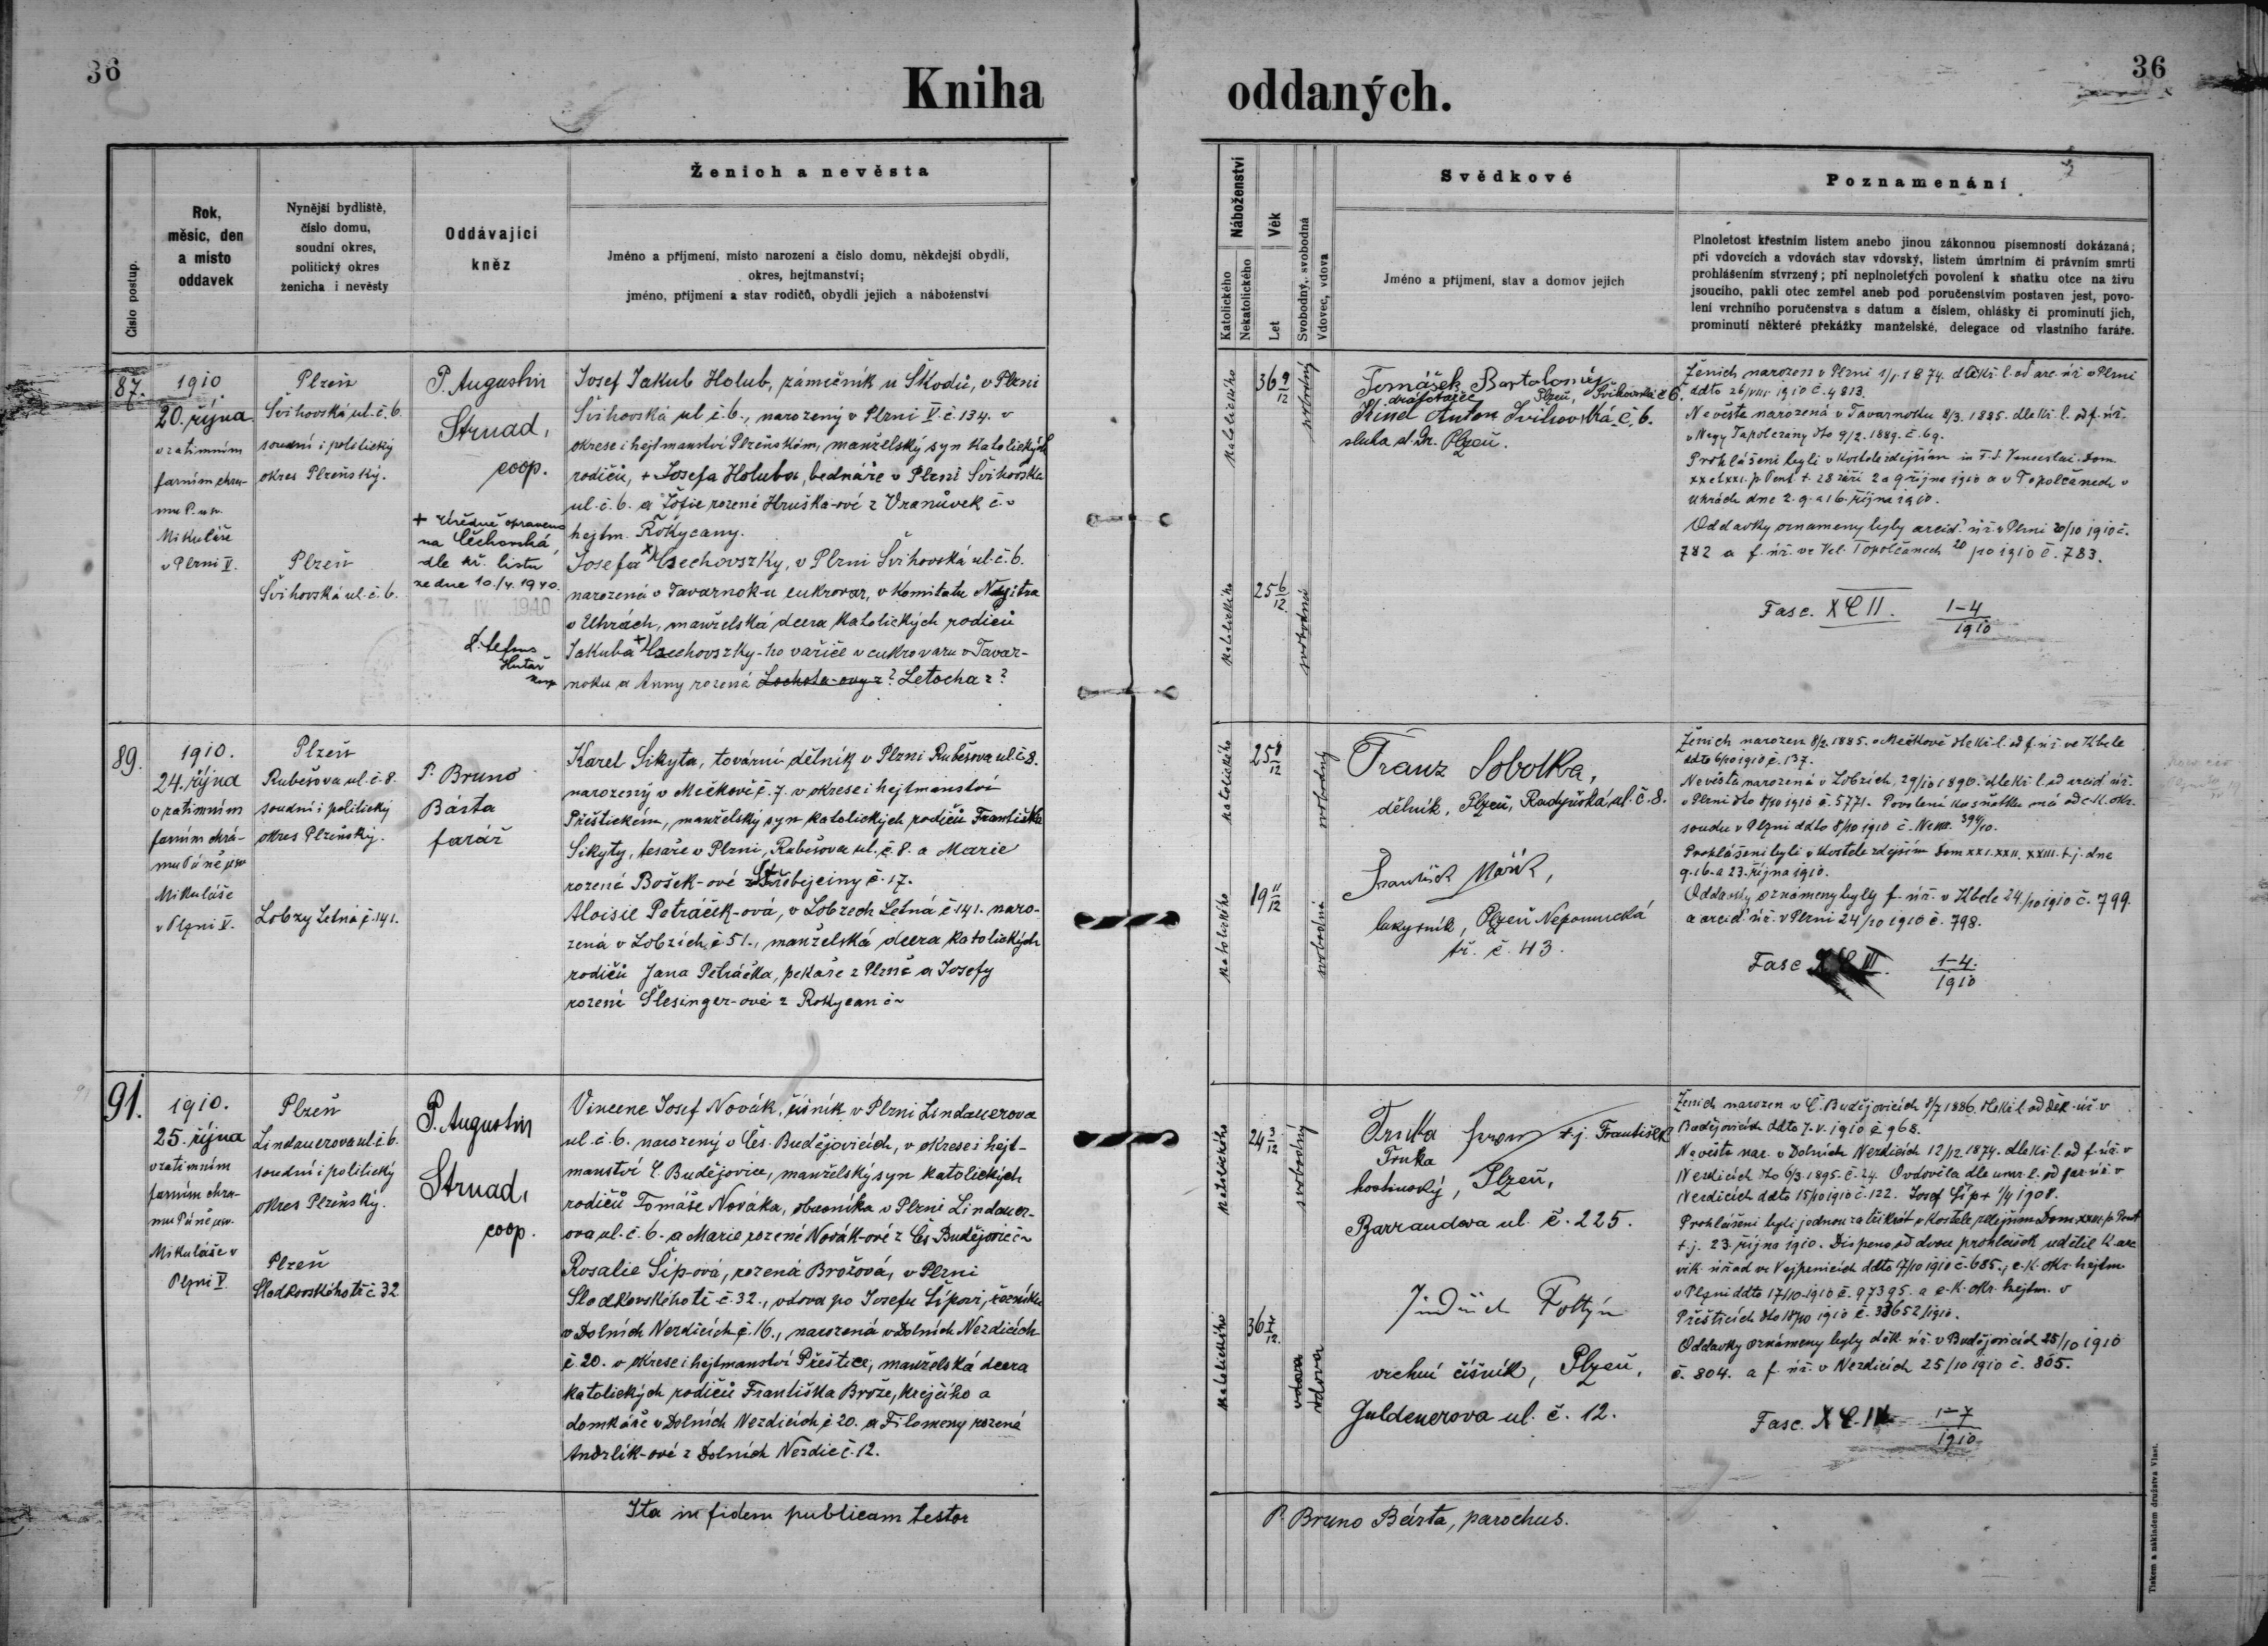 36
Kniha oddaných.
36
Číslo postup.
Rok, měsíc, den a místo oddavek
Nynější bydliště, číslo domu, soudní okres, politický okres ženicha i nevěsty
Oddávající kněz
Ženich a nevěsta
Jméno a příjmení, místo narození a číslo domu, někdejší obydlí, okres, hejtmanství;
jméno, příjmení a stav rodičů, obydlí jejich a náboženství
Náboženství
Katolického
Nekatolického
Věk
Let
Svobodný, svobodná
Vdovec, vdova
Svědkové
Jméno a příjmení, stav a domov jejich
Poznamenání
Plnoletost křestním listem anebo jinou zákonnou písemností dokázaná;
při vdovcích a vdovách stav vdovský, listem úmrtním či právním smrti
prohlášením stvrzený; při neplnoletých povolení k sňatku otce na živu
jsoucího, pakli otec zemřel aneb pod poručenstvím postaven jest, povo-
lení vrchního poručenstva s datum a číslem, ohlášky či prominutí jich,
prominutí některé překážky manželské, delegace od vlastního faráře.
87.
1910
20. října
v zatimním
farním chrá-
mu P. u sv.
Mikuláše
v Plzni V.
Plzeň
Švihovská ul. č. 6.
soudní i politický
okres Plzeňský.
Plzeň
Švihovská ul. č. 6.
P. Augustin
Strnad,
coop.
+ Úředně opraveno
na Čechovská,
dle kř. listu
ze dne 10./4. 1940.
17. IV. 1940
Josef Jakub Holub, zámečník u Škodů, v Plzni
Švihovská ul. č. 6., narozený v Plzni V. č. 134. v
okrese i hejtmanství Plzeňském, manželský syn katolických
rodičů, + Josefa Holuba, bednáře v Plzni Švihovská
ul. č. 6. a Žofie rozené Hruška-ové z Vranůvek č. ~
hejtm. Rokycany.
Josefa x) Csechovszky, v Plzni Švihovská ul. č. 6.
narozená v Tavarnok-u cukrovar, v Komitatu Nagitra
v Uhrách, manželská dcera katolických rodičů
Jakuba +) Csechovszky-ho vařiče v cukrovaru v Tavar-
noku a Anny rozené Lochota-ovy z? Letocha z?
katolického
36 9/12
svobodný
katolického
25 6/12
svobodná
Tomášek Bartoloměj
Plzeň, Švihovská č 6.
Kindl Anton Švihovská č. 6.
sluha st. Dr. Plzeň.
Ženich narozen v Plzni 1/1. 1874. dle kř. l. od arc. úř. v Plzni
ddto 26/VIII. 1910 č. 4813.
Nevěsta narozená v Tavarnoku 8/3. 1885. dle kř. l. od f. úř.
v Nagy Tapolczany dto 9/2. 1889. č. 69.
Prohlášeni byli v kostele zdejším in F. S. Venceslai. Dom
XX et XXI. p. Pent t. 28 září 2 a 9 října 1910 a v Topolčanech v
Uhrách dne 2. 9. a 16. října 1910.
Oddavky oznameny byly arcid. úř. v Plzni 20/10 1910 č.
782 a f. úř. ve Vel. Topolčanech 20/10 1910 č. 783.
Fasc. XCII. 1-4/1910
89.
1910.
24. října
v zatimním
farním chrá-
mu Páně u sv.
Mikuláše
v Plzni V.
Plzeň
Rubešova ul. č. 8.
soudní i politický
okres Plzeňský.
Lobzy Letná č. 141.
P. Bruno
Bárta
farář
Karel Sikyta, tovární dělník v Plzni Rubešova ul. č 8.
narozený v Mečkově č. 7. v okrese i hejtmanství
Přeštickém, manželský syn katolických rodičů Františka
Sikyty, tesaře v Plzni, Rubešova ul. č. 8. a Marie
rozené Bošek-ové č. 17.
Aloisie Petráček-ová, v Lobzech Letná č 141. naro-
zená v Lobzích č 51., manželská dcera katolických
rodičů Jana Petráčka, pekaře z Plzně a Josefy
rozené Šlesinger-ové z Rokycan č ~
katolického
25 8/12
svobodný
katolického
19 11/12
svobodná
Franz Sobotka,
dělník, Plzeň, Radyňská ul. č. 8.
František Mařík,
lakyrník, Plzeň Nepomucká
tř. č. 43.
Ženich narozen 8/2. 1885. v Mečkově dle kř. l. od f. úř. ve Kbele
ddto 6/10 1910 č. 137.
Nevěsta narozená v Lobzích, 29/10 1890. dle kř. l. od arcid. úř.
v Plzni dto 8/10 1910 č. 5771. Povolení ku sňatku má od c. k. okr.
soudu v Plzni ddto 8/10 1910
Prohlášeni byli v kostele zdejším Dom XXI. XXII. XXIII. t. j. dne
9. 16. a 23. října 1910.
Oddavky oznámeny byly f. úř. v Kbele 24/10 1910 č. 799.
a arcid. úř. v Plzni 24/10 1910 č. 798.
Fasc. 1-4/1910
91.
1910.
25. října
v zatimním
farním chrá-
mu Páně u sv.
Mikuláše v
Plzni V.
Plzeň
Lindauerova ul. č. 6.
soudní i politický
okres Plzeňský.
Plzeň
Sladkovského tř. č 32
P. Augustin
Strnad,
coop.
Vincenc Josef Novák, číšník v Plzni Lindauerova
ul. č. 6. narozený v Čes. Budějovicích, v okrese i hejt-
manství Č. Budějovice, manželský syn katolických
rodičů Tomáše Nováka, obuvníka v Plzni Lindauer-
ova ul. č. 6. a Marie rozené Novák-ové z Čes Budějovic č ~
Rosalie Šíp-ová, rozená Brožová, v Plzni
Sladkovského tř. č. 32., vdova po Josefu Šípovi, řezníku
v Dolních Nezdicích č. 16., narozená v Dolních Nezdicích
č 20. v okrese i hejtmanství Přeštice, manželská dcera
katolických rodičů Františka Brože, krejčího a
domkáře v Dolních Nezdicích č 20. a Filomeny rozené
Andrlík-ové z Dolních Nezdic č. 12.
katolického
24 3/12
svobodný
katolického
vdova
vdova
Truka t. j. František
Truka
hostinský, Plzeň,
Barrandova ul. č. 225.
Jindřich Foltýn
vrchní číšník, Plzeň,
Guldenerova ul. č. 12.
Ženich narozen v Č. Budějovicích 8/7 1886. dle kř. l. od děk. úř. v
Budějovicích ddto 7. V. 1910 č 968.
Nevěsta nar. v Dolních Nezdicích 12/12. 1874. dle kř. l. od f. úř. v
Nezdicích dto 6/3. 1895. č. 24. Ovdověla dle úmr. l. od far. úř. v
Nezdicích ddto 15/10 1910 č. 122. Josef Šíp + 1/4 1908.
Prohlášeni byli jednou za třikrát v kostele zdejším Dom XXIII. p. Pent
t. j. 23. října 1910. Dispens od dvou prohlášek udělil
vik. úřad ve Vejprnicích ddto 7/10 1910 č. 685., c. k. okr. hejtm.
v Plzni ddto 17/10. 1910 č. 97395. a c. k. okr. hejtm. v
Přešticích dto 18/10 1910
Oddavky oznámeny byly děk. úř. v Budějovicích 25/10 1910
č. 804. a f. úř. v Nezdicích 25/10 1910 č. 805.
Fasc. 1-7/1910
Ita in fidem publicam testor
P. Bruno Bárta, parochus.
Tiskem a nákladem družstva Vlast.